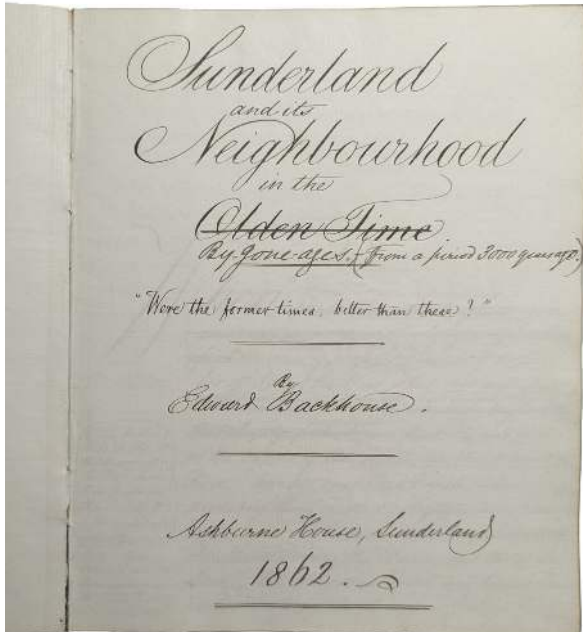 Sunderland
and its
Neighbourhood
in the
Olden Time
By-gone-ages. (from a period 3000 years ago.)
"Were the former times, better than these?"
By
Edward Backhouse.
Ashburne House, Sunderland
1862.